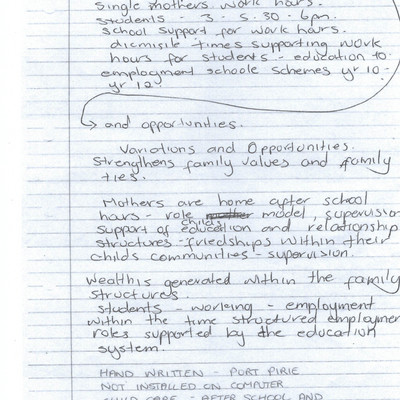 single mothers work hours.
students - 3 - 5.30 - 6pm.
school support for work hours.
dicmisile times supporting work
hours for students - education to
employment schoole schemes yr 10 -
yr 12
→ and opportunities.
Variations and Opportunities.
Strengthens family values and family
ties.
Mothers are home after school
hours - role model, supervision
support of childs education and relationship
structures - friedships within their
childs communities - supervision.
Wealth is generated within the family
structures.
students - working - employment
within the time structured employmen
roles supported by the education
system.
HAND WRITTEN - PORT PIRIE
NOT INSTALLED ON COMPUTER
CHILD CARE - AFTER SCHOOL AND